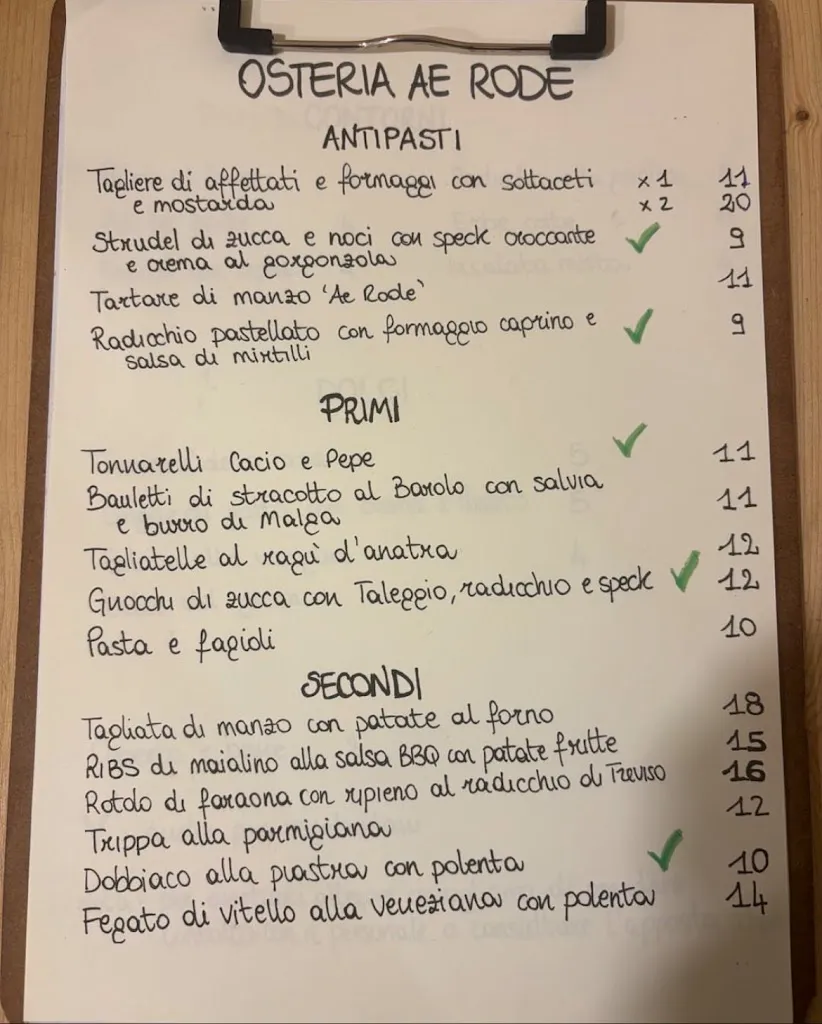 OSTERIA AE RODE
ANTIPASTI
Tagliere di affettati e formaggi con sottaceti x 1 11
e mostarda x 2 20
Strudel di zucca e noci con speck croccante 9
e crema al gorgonzola
Tartare di manzo 'Ae Rode' 11
Radicchio pastellato con formaggio caprino e 9
salsa di mirtilli
PRIMI
Tonnarelli Cacio e Pepe 11
Bauletti di stracotto al Barolo con salvia 11
e burro di Malga
Tagliatelle al ragù d'anatra 12
Gnocchi di zucca con Taleggio, radicchio e speck 12
Pasta e fagioli 10
SECONDI
Tagliata di manzo con patate al forno 18
RIBS di maialino alla salsa BBQ con patate fritte 15
Rotolo di faraona con ripieno al radicchio di Treviso 16
Trippa alla parmigiana 12
Dobbiaco alla piastra con polenta 10
Fegato di vitello alla veneziana con polenta 14